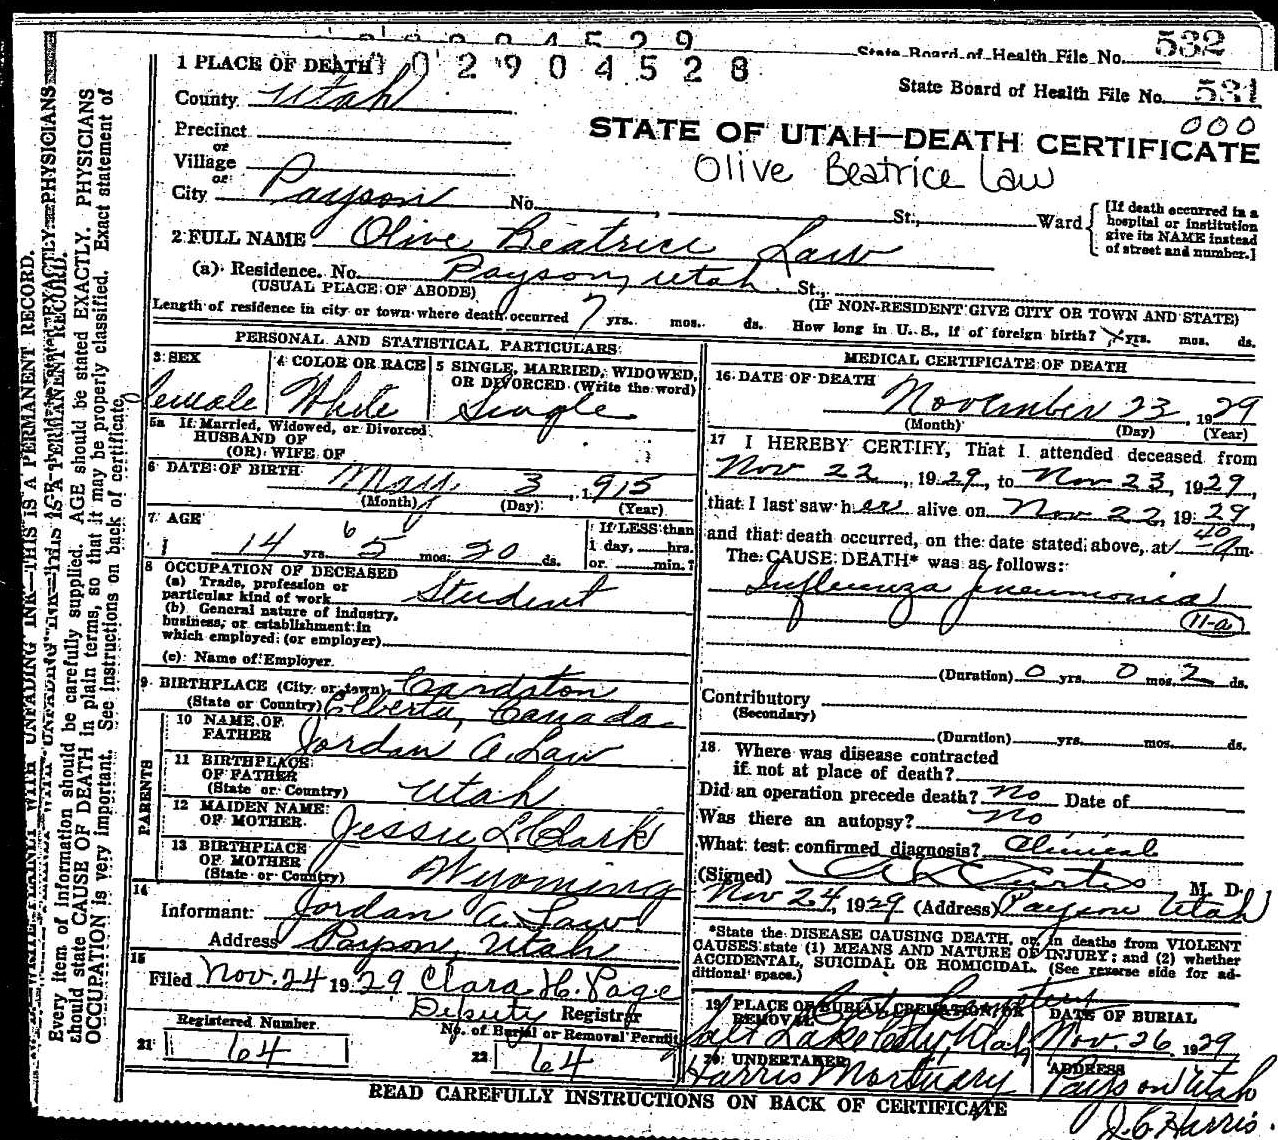 State Board of Health File No. 532
1 PLACE OF DEATH 0 2 9 0 4 5 2 8
State Board of Health File No. 531
County Utah
000
STATE OF UTAH—DEATH CERTIFICATE
Olive Beatrice Law
Precinct
or
Village
or
City Payson No. St., Ward
[If death occurred in a hospital or institution give its NAME instead of street and number.]
2 FULL NAME Olive Beatrice Law
(a) Residence. No. Payson, Utah. St.,
(USUAL PLACE OF ABODE) (IF NON-RESIDENT GIVE CITY OR TOWN AND STATE)
Length of residence in city or town where death occurred 7 yrs. mos. ds. How long in U. S., if of foreign birth? yrs. mos. ds.
PERSONAL AND STATISTICAL PARTICULARS
3 SEX Female
4 COLOR OR RACE White
5 SINGLE, MARRIED, WIDOWED, OR DIVORCED. (Write the word) Single
5a If Married, Widowed, or Divorced
HUSBAND OF
(OR) WIFE OF
6 DATE OF BIRTH May 3, 1915
(Month) (Day) (Year)
7 AGE
14 yrs. 6 5 mos. 20 ds.
If LESS than
1 day, hrs.
or min.?
8 OCCUPATION OF DECEASED
(a) Trade, profession or
particular kind of work Student
(b) General nature of industry,
business, or establishment in
which employed (or employer)
(c) Name of Employer
9 BIRTHPLACE (City or town) Cardston
(State or Country) Alberta, Canada
PARENTS
10 NAME OF FATHER Jordan A. Law
11 BIRTHPLACE OF FATHER (State or Country) Utah
12 MAIDEN NAME OF MOTHER Jessie L. Clark
13 BIRTHPLACE OF MOTHER (State or Country) Wyoming
14
Informant: Jordan A. Law
Address Payson, Utah
15
Filed Nov. 24 1929 Clara H. Page
Deputy Registrar
Registered Number. No. of Burial or Removal Permit
21 64 22 64
MEDICAL CERTIFICATE OF DEATH
16 DATE OF DEATH
November 23, 1929
(Month) (Day) (Year)
17 I HEREBY CERTIFY, That I attended deceased from
Nov 22, 1929, to Nov 23, 1929,
that I last saw her alive on Nov 22, 1929,
and that death occurred, on the date stated above, at 1 40 a m.
The CAUSE DEATH* was as follows:
Influenza pneumonia
11-a
(Duration) 0 yrs. 0 mos. 2 ds.
Contributory
(Secondary)
(Duration) yrs. mos. ds.
18 Where was disease contracted
if not at place of death?
Did an operation precede death? No Date of
Was there an autopsy? No
What test confirmed diagnosis? Clinical
(Signed) A L Curtis M. D.
Nov 24, 1929 (Address) Payson Utah
*State the DISEASE CAUSING DEATH, or, in deaths from VIOLENT
CAUSES state (1) MEANS AND NATURE OF INJURY; and (2) whether
ACCIDENTAL, SUICIDAL OR HOMICIDAL. (See reverse side for ad-
ditional space.)
19 PLACE OF BURIAL, CREMATION OR REMOVAL City Cemetery
Salt Lake City, Utah
DATE OF BURIAL
Nov. 26 1929
20 UNDERTAKER
Harris Mortuary
ADDRESS
Payson Utah
J. C. Harris.
READ CAREFULLY INSTRUCTIONS ON BACK OF CERTIFICATE
WRITE PLAINLY WITH UNFADING INK—THIS IS A PERMANENT RECORD.
Every item of information should be carefully supplied. AGE should be stated EXACTLY. PHYSICIANS
should state CAUSE OF DEATH in plain terms, so that it may be properly classified. Exact statement of
OCCUPATION is very important. See instructions on back of certificate.